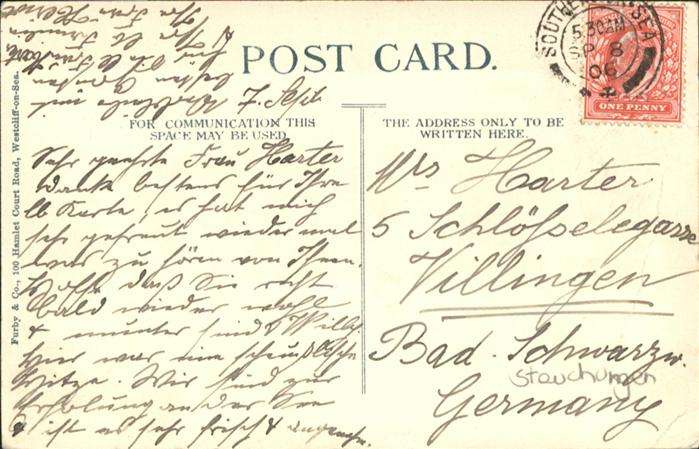 POST CARD.
FOR COMMUNICATION THIS
SPACE MAY BE USED
THE ADDRESS ONLY TO BE
WRITTEN HERE.
SOUTHEND ON SEA
5.30AM
SP 8
06
ONE PENNY
Furby & Co., 100 Hamlet Court Road, Westcliff-on-Sea.
7. Sept.
Sehr geehrte Frau Harter
danke bestens für Ihre
lb Karte, es hat mich
sehr gefreut wieder mal
was zu hören von Ihnen.
hoffe daß Sie recht
bald wieder wohl
& munter sind & Willy
hier war eine scheußliche
Hitze. Wir sind zur
Erholung an der See
& ist es sehr frisch & angenehm.
Mrs Harter
5 Schlößelegasse
Villingen
Bad. Schwarzw.
Stauchungen
Germany